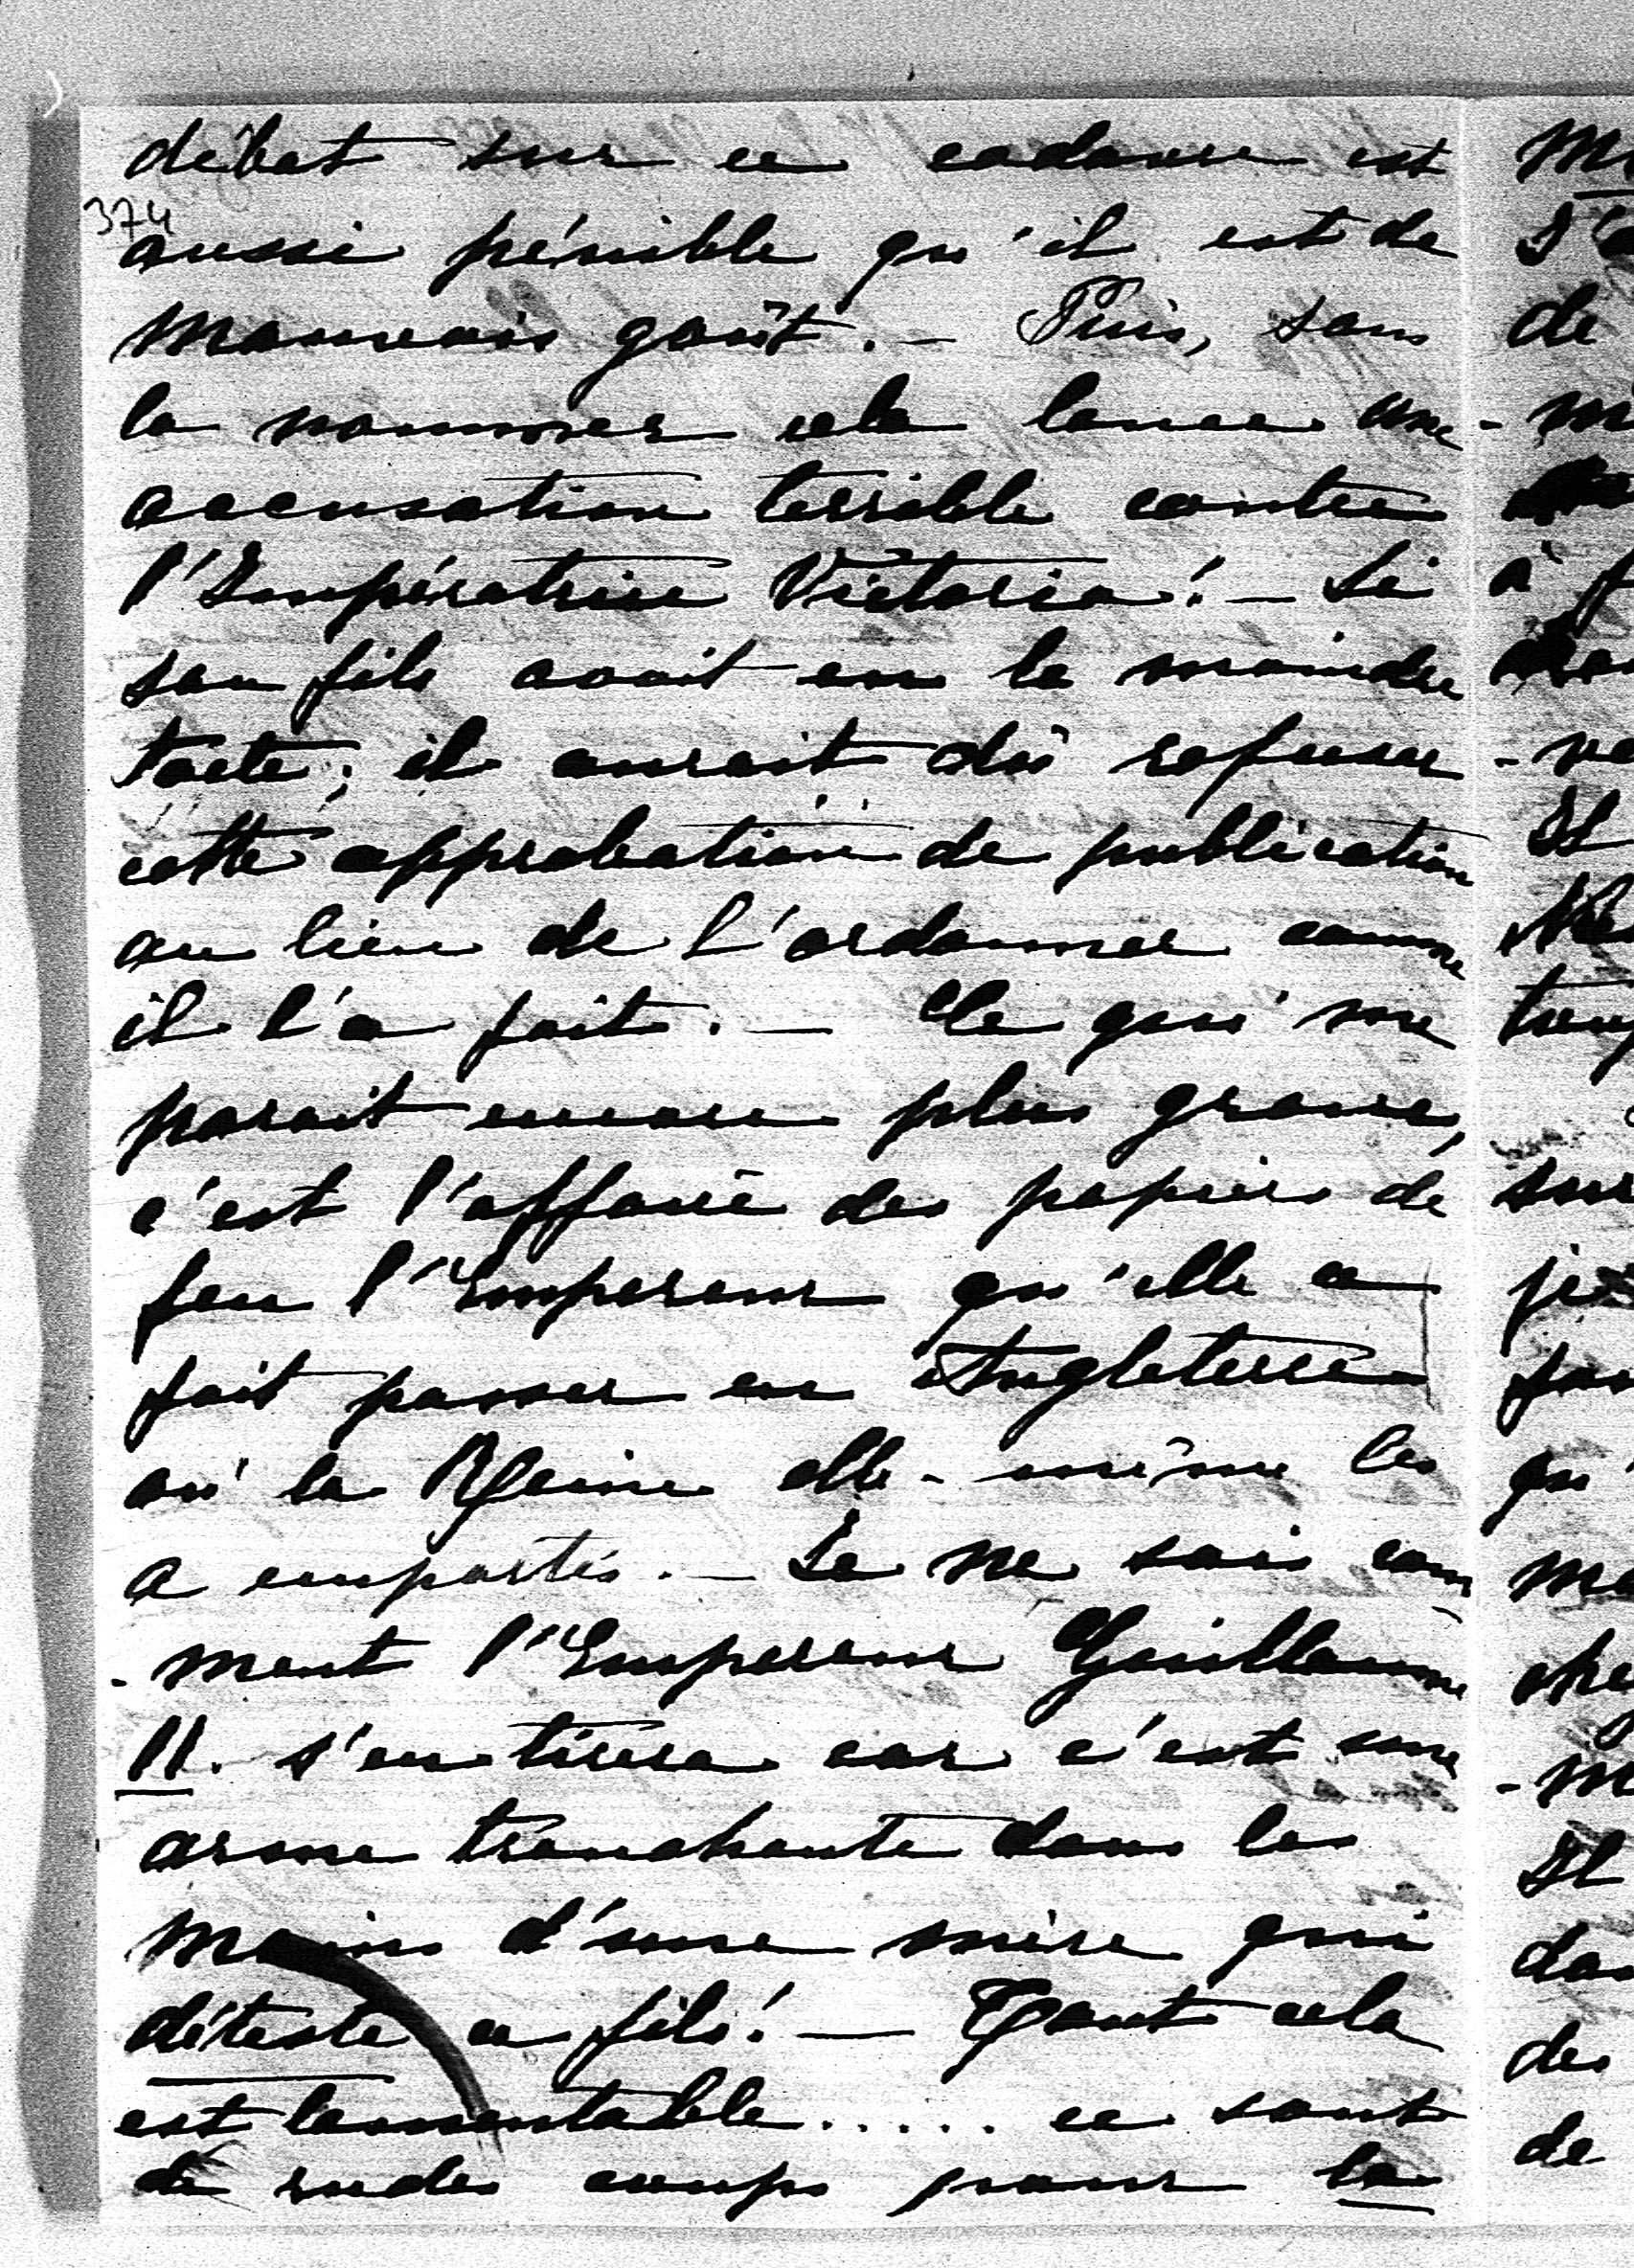 débat sur ce cadavre est
374
aussi pénible qu'il est de
mauvais goût. — Puis, sans
la nommer cela lance une
accusation terrible contre
l'Impératrice Victoria! — Si
son fils avait eu le moindre
tacte, il aurait dû refuser
cette approbation de publication
au lieu de l'ordonner comme
il l'a fait. — Ce qui me
parait encore plus grave,
c'est l'affaire des papiers de
feu l'Empereur qu'elle a
fait passer en Angleterre
où la Reine elle-même les
a emportés. — Je ne sais com
-ment l'Empereur Guillaume
II. s'en tirera car c'est une
arme tranchante dans les
mains d'une mère qui
déteste ce fils! — Tout cela
est lamentable..... ce sont
de rudes coups pour la